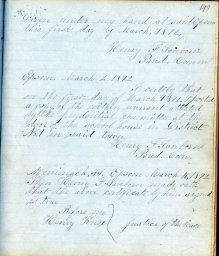 199
Given under my hand at said Epsom
this first day of March, 1872.
Henry F Sanborn
Prud. Com
Epsom March 2 1872
I certify that
on the first day of March 1872, I posted
a copy of the within
by the prudential committee at the
door of the school house in District
in said town
Henry F Sanborn
Prud. Com.
Merrimack, SS. Epsom March 4, 1872
Then Henry F Sanborn made oath
that the above certificate by him signed
is true
Before me
Henry
Justice of the Peace